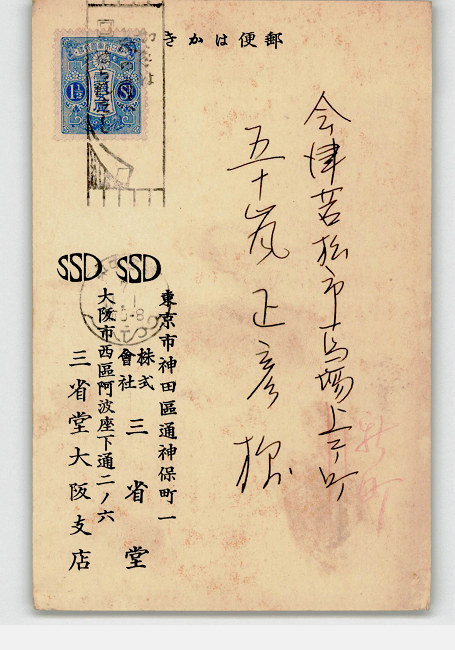 きかは便郵
1½
Sn
会津若松市馬場上一ノ町
五十嵐正彦様
新町
SSD SSD
東京市神田區通神保町一
株式會社 三省堂
大阪市西區阿波座下通二ノ六
三省堂大阪支店